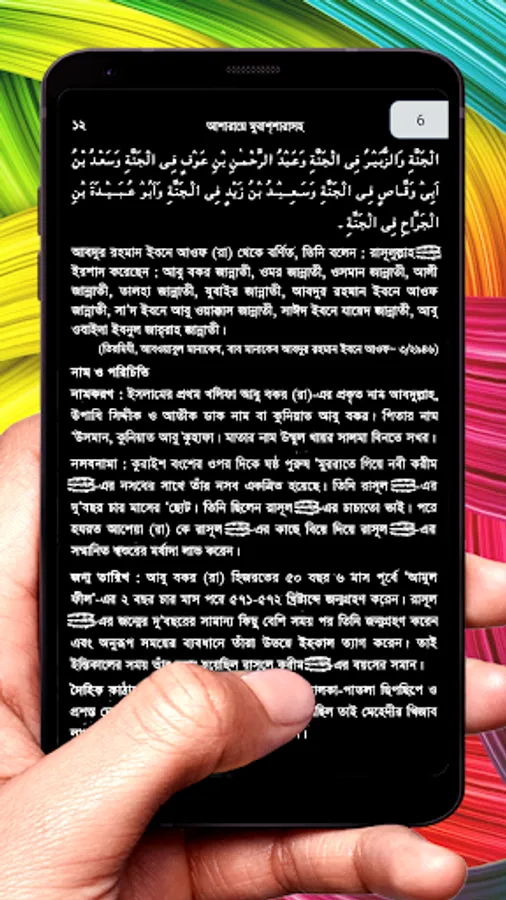 ১২ আশারায়ে মুবাশ্শারাসহ 6
الْجَنَّةِ وَالزُّبَيْرُ فِى الْجَنَّةِ وَعَبْدُ الرَّحْمٰنِ بْنِ عَوْفٍ فِى الْجَنَّةِ وَسَعْدُ بْنُ
اَبِىْ وَقَّاصٍ فِى الْجَنَّةِ وَسَعِيْدُ بْنُ زَيْدٍ فِى الْجَنَّةِ وَاَبُوْ عُبَيْدَةَ بْنِ
الْجَرَّاحِ فِى الْجَنَّةِ ـ
আবদুর রহমান ইবনে আওফ (রা) থেকে বর্ণিত, তিনি বলেন : রাসূলুল্লাহ
ইরশাদ করেছেন : আবু বকর জান্নাতী, ওমর জান্নাতী, ওসমান জান্নাতী, আলী
জান্নাতী, তালহা জান্নাতী, যুবাইর জান্নাতী, আবদুর রহমান ইবনে আওফ
জান্নাতী, সা'দ ইবনে আবু ওয়াক্কাস জান্নাতী, সাঈদ ইবনে যায়েদ জান্নাতী, আবু
ওবাইদা ইবনুল জার্‌রাহ জান্নাতী।
(তিরমিযী, আবওয়াবুল মানাকেব, বাব মানাকেব আবদুর রহমান ইবনে আওফ– ৩/২৯৪৬)
নাম ও পরিচিতি
নামকরণ : ইসলামের প্রথম খলিফা আবু বকর (রা)-এর প্রকৃত নাম আবদুল্লাহ,
উপাধি সিদ্দীক ও আতীক ডাক নাম বা কুনিয়াত আবু বকর। পিতার নাম
'উসমান, কুনিয়াত আবু কুহাফা। মাতার নাম উম্মুল খায়র সালমা বিনতে সখর।
নসবনামা : কুরাইশ বংশের ওপর দিকে ষষ্ঠ পুরুষ 'মুররাতে গিয়ে নবী করীম
-এর নসবের সাথে তাঁর নসব একত্রিত হয়েছে। তিনি রাসূল -এর
দু'বছর চার মাসের 'ছোট। তিনি ছিলেন রাসূল -এর চাচাতো ভাই। পরে
হযরত আয়েশা (রা) কে রাসূল -এর কাছে বিয়ে দিয়ে রাসূল -এর
সম্মানিত শ্বশুরের মর্যাদা লাভ করেন।
জন্ম তারিখ : আবু বকর (রা) হিজরতের ৫০ বছর ৬ মাস পূর্বে 'আমুল
ফীল'-এর ২ বছর চার মাস পরে ৫৭১-৫৭২ খ্রিষ্টাব্দে জন্মগ্রহণ করেন। রাসূল
-এর জন্মের দু'বছরের সামান্য কিছু বেশি সময় পর তিনি জন্মগ্রহণ করেন
এবং অনুরূপ সময়ের ব্যবধানে তাঁরা উভয়ে ইহকাল ত্যাগ করেন। তাই
ইন্তিকালের সময় তাঁর হয়েছিল রাসূলে করীম -এর বয়সের সমান।
দৈহিক কাঠা -পাতলা ছিপছিপে ও
প্রশস্ত তাই মেহেদীর খিজাব